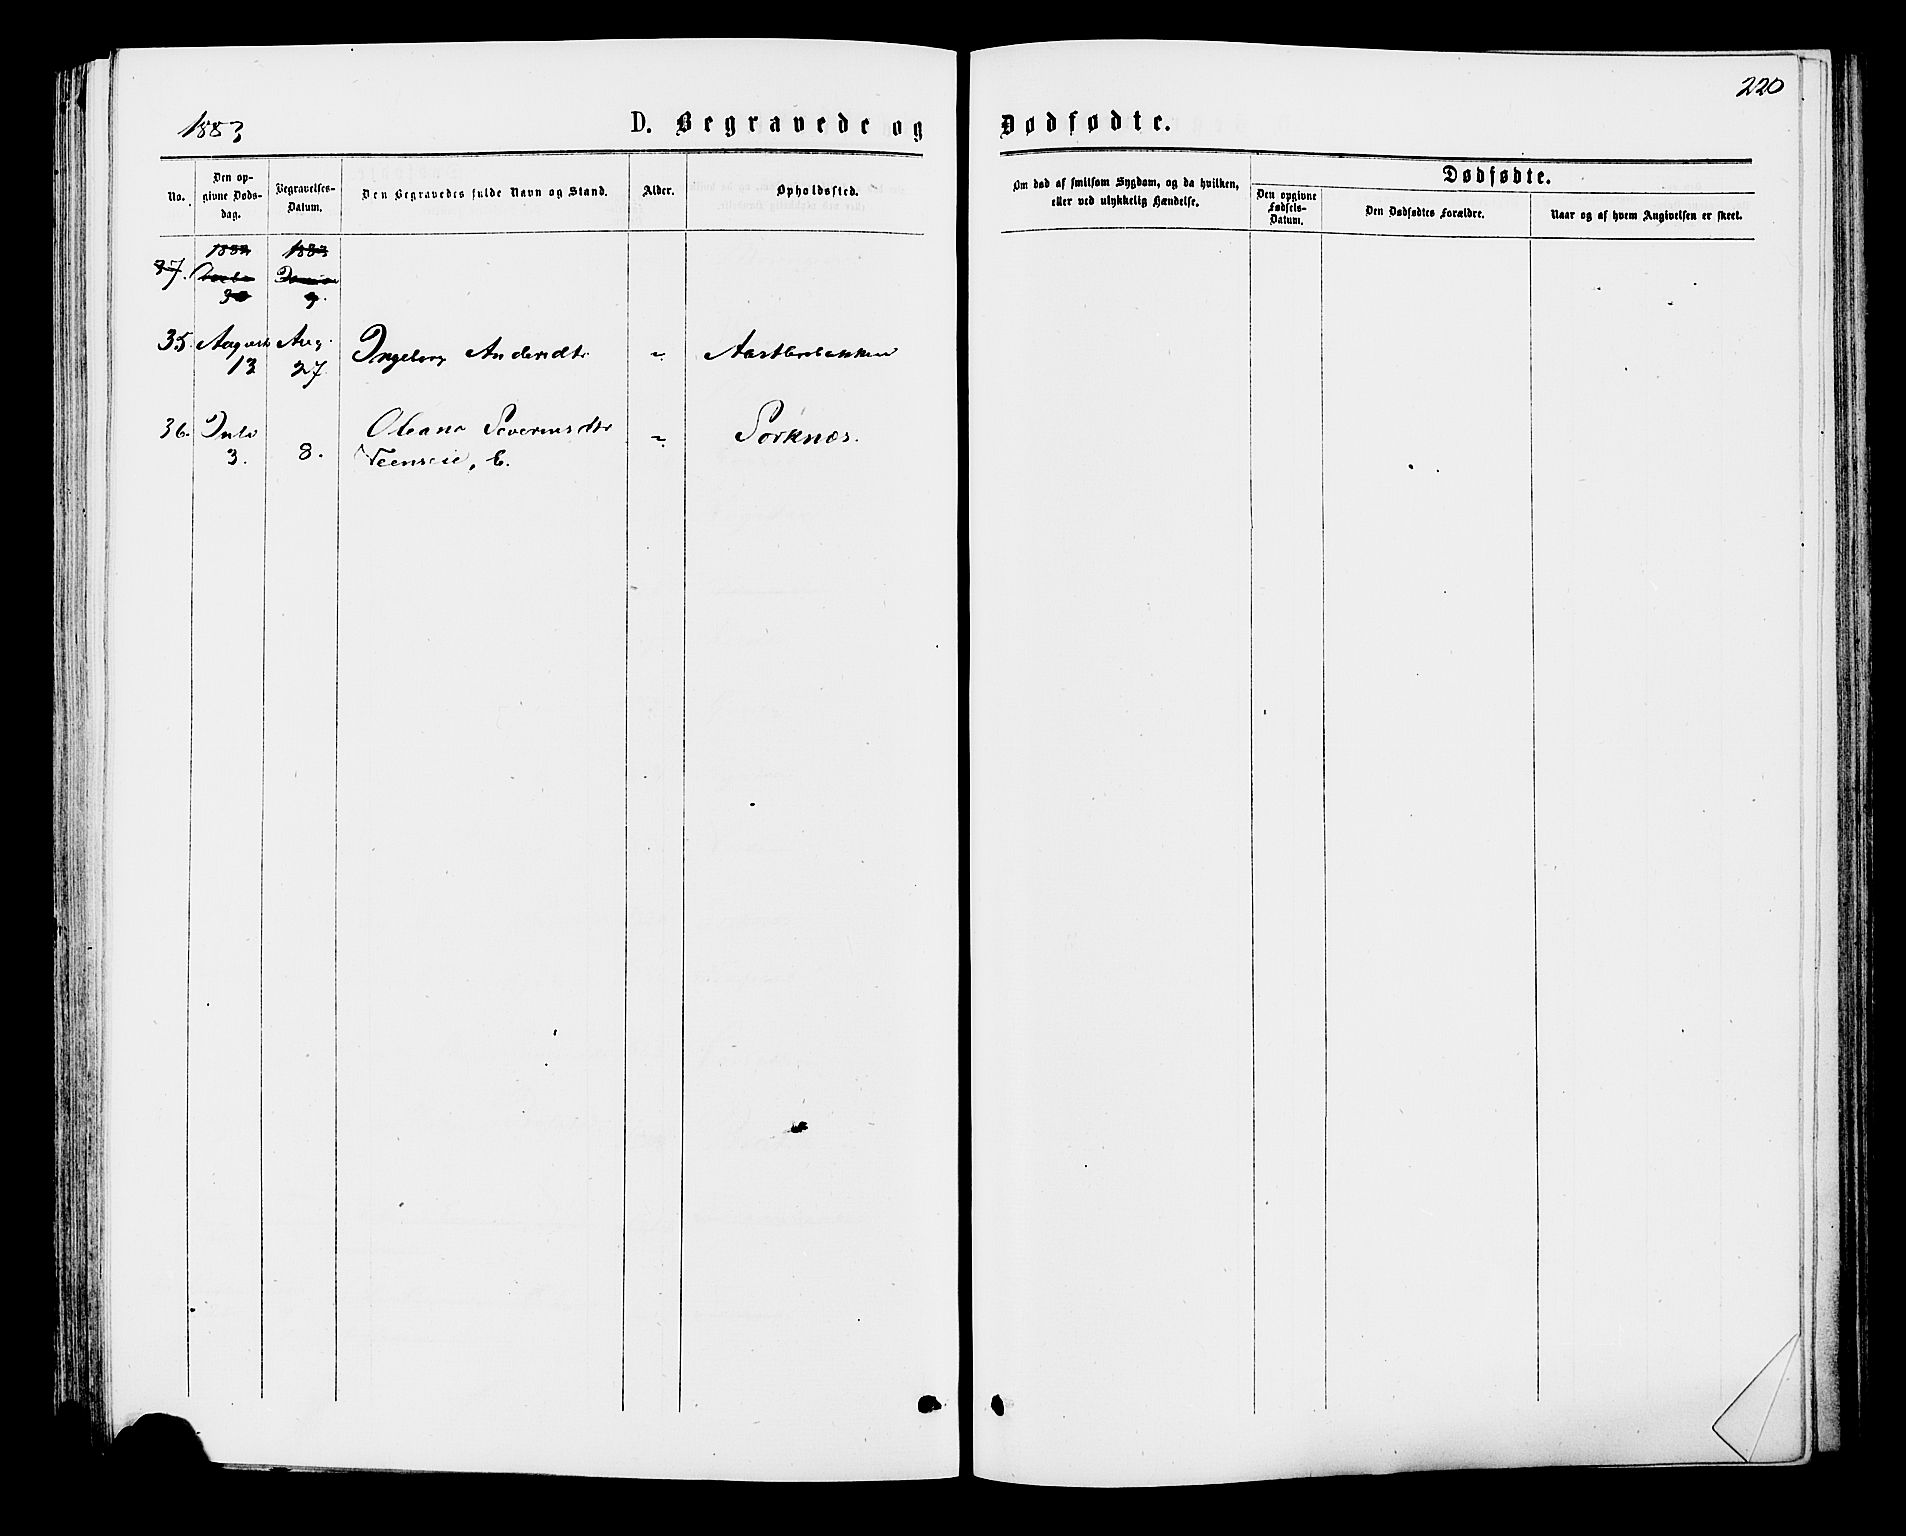 220
1883
D. Begravede og Dødfødte.
No.
Den op-
givne Døds-
dag.
Begravelses-
Datum.
Den Begravedes fulde Navn og Stand.
Alder.
Opholdssted.
Om død af smitsom Sygdom, og da hvilken,
eller ved ulykkelig Hændelse.
Dødfødte.
Den opgivne
Fødsels-
Datum.
Den Dødfødtes Forældre.
Naar og af hvem Angivelsen er skeet.
1882 1883
37.
30 9.
35. August Aug. Ingeborg Andersdtr "
13 27.
36. Juli Oleana Severinsdtr " Sorknæs.
3. 8. E.